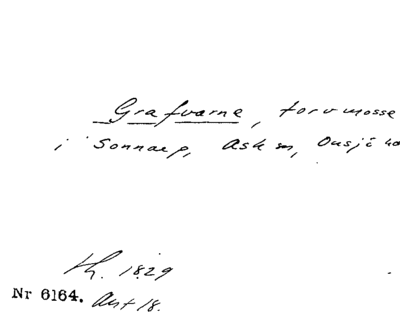 Grafvarne, torvmosse
i Sonnarp, Ask sn, Onsjö h
Lh. 1829
Nr 6164. Aut 18.